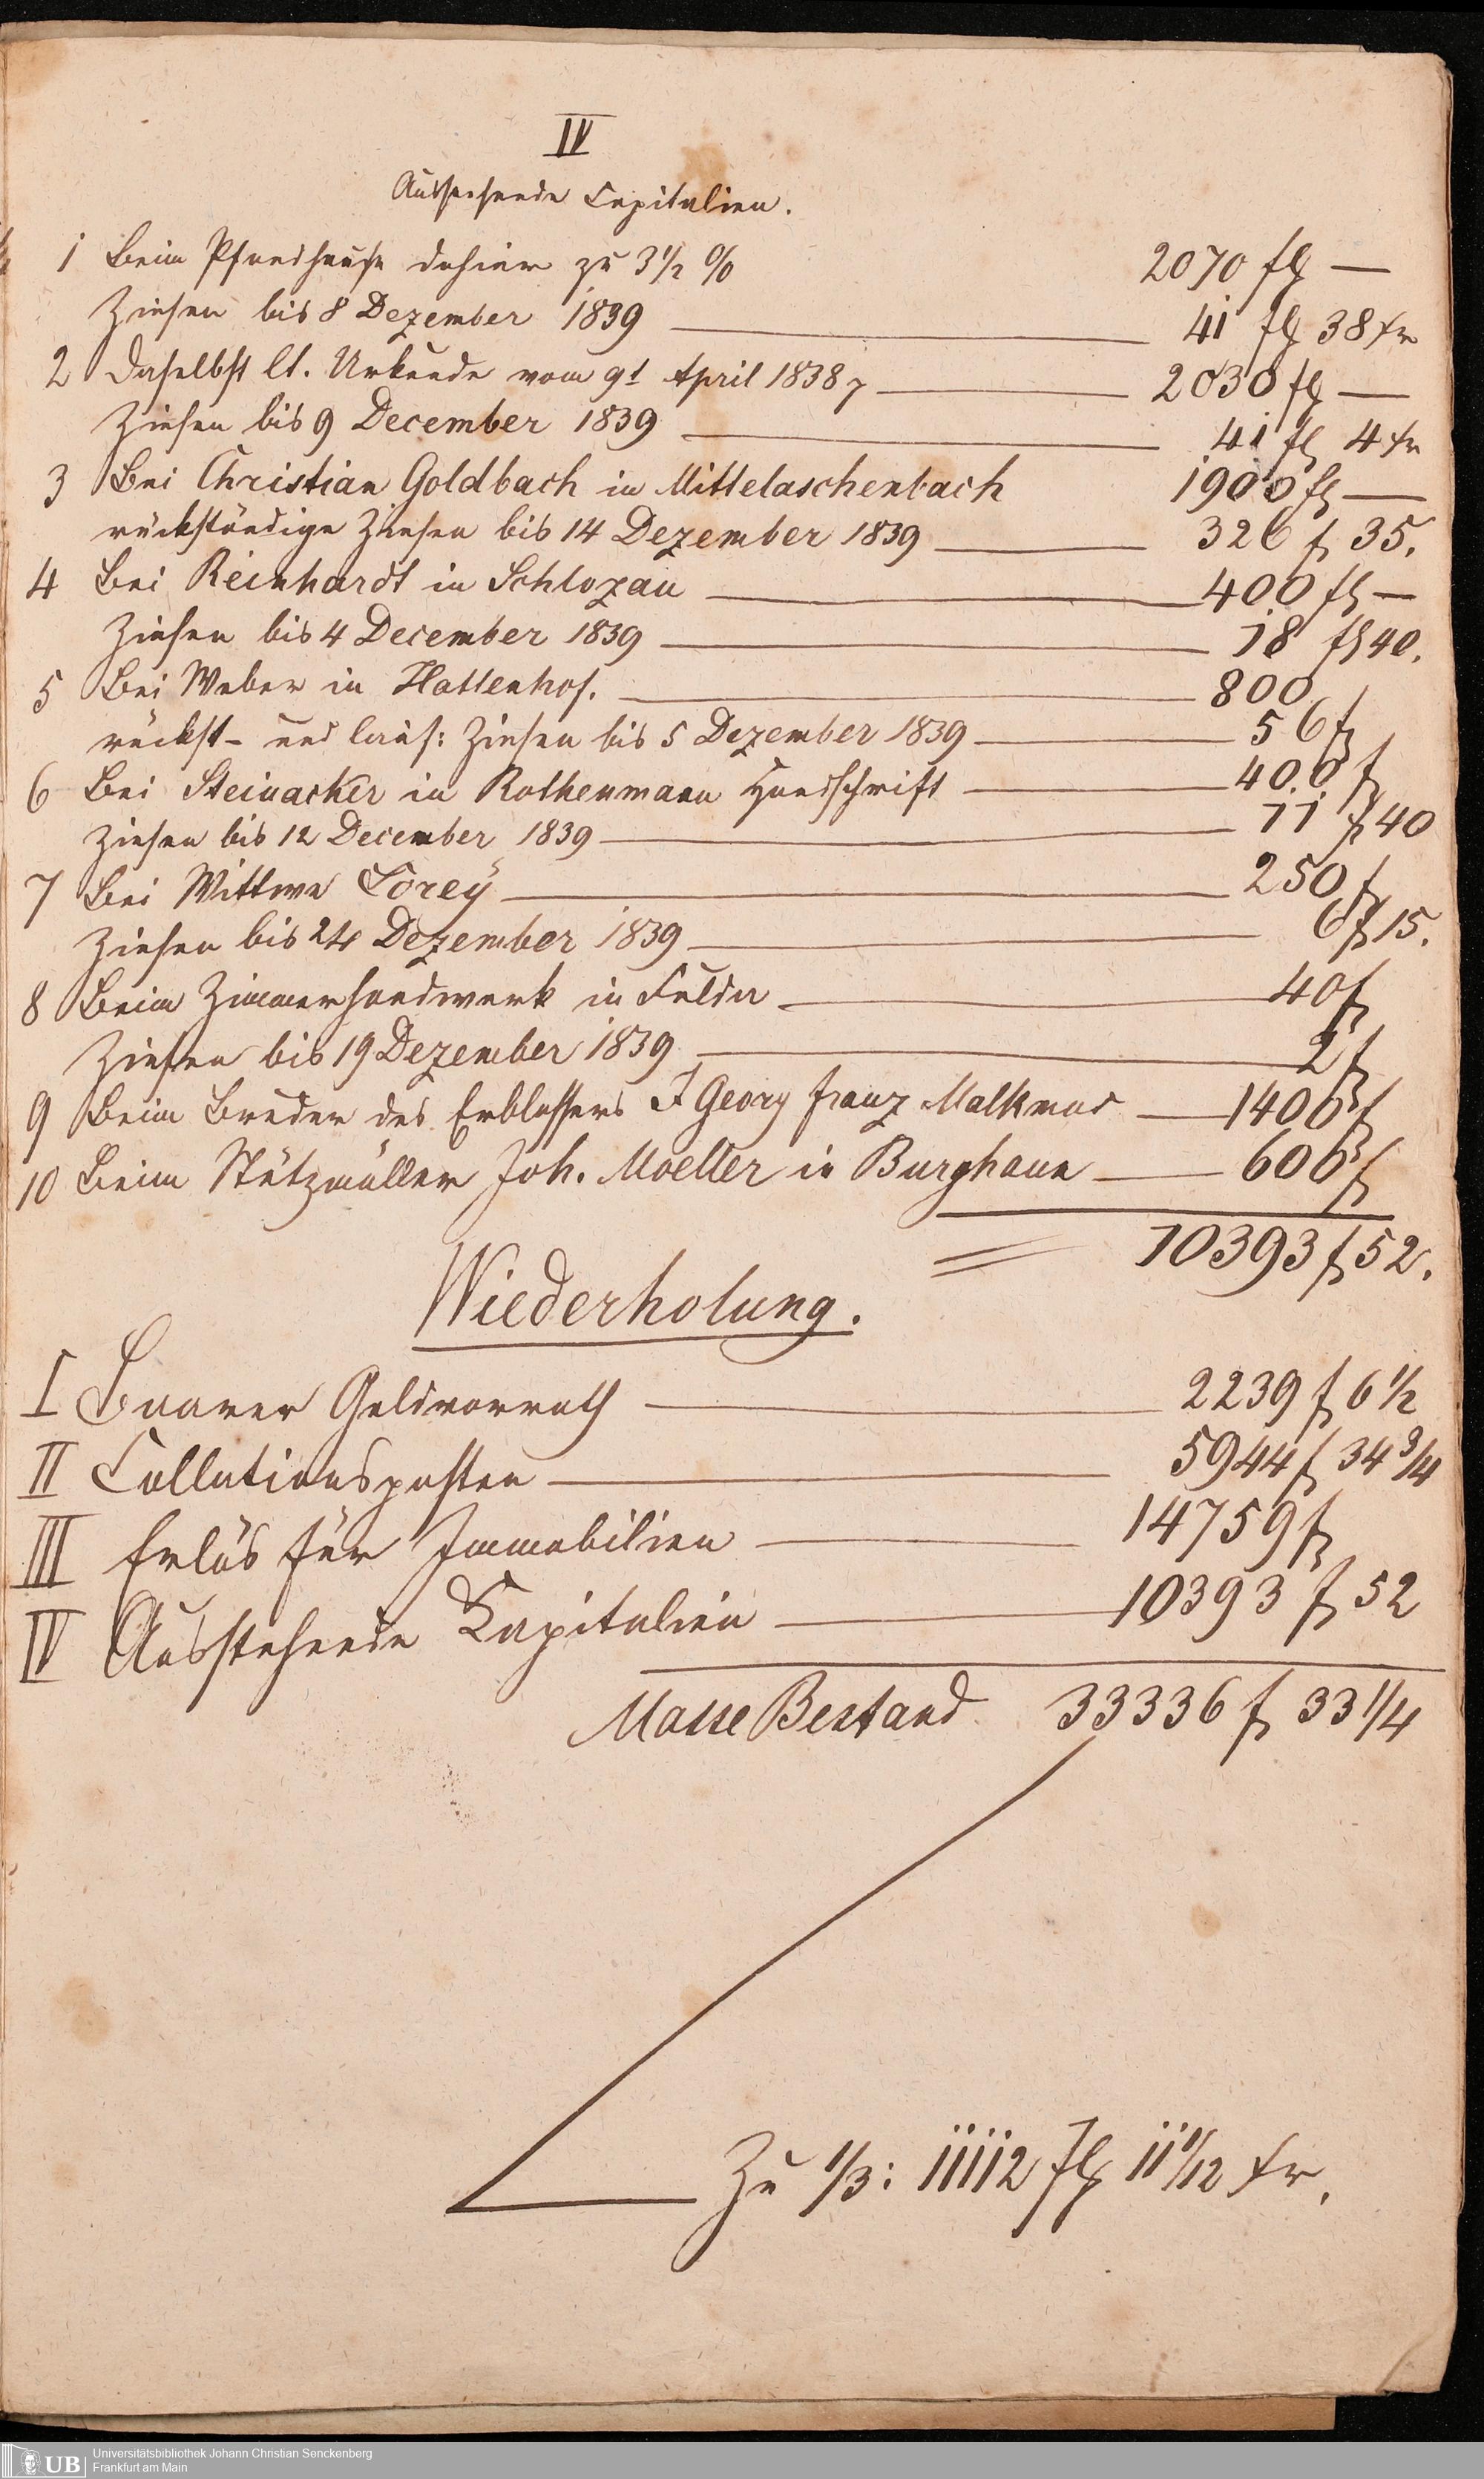 IV
Ausstehende Capitalien.
1 Beim Pfandhause dahier zu 3½ % 2070 fl —
Zinsen bis 8 Dezember 1839 — 41 fl 38 kr
2 Daselbst lt. Urkunde vom 9t April 1838 — 2030 fl —
Zinsen bis 9 December 1839 — 41 fl 4 kr
3 Bei Christian Goldbach in Mittelaschenbach 1900 fl —
rückständige Zinsen bis 14 Dezember 1839 — 326 f 35.
4 Bei Reinhardt in Schlozau — 400 fl —
Zinsen bis 4 December 1839 — 18 fl 40.
5 Bei Weber in Hattenhof. — 800
rückst- und lauf: Zinsen bis 5 Dezember 1839 — 56 f
6 Bei Steinacker in Rothenmann Handschrift — 400 f
Zinsen bis 12 December 1839 — 11 f 40
7 Bei Wittwe Lorey — 250 f
Zinsen bis 24 Dezember 1839 — 6 f 15.
8 Beim Zimmerhandwerk in Fulda — 40 f
Zinsen bis 19 Dezember 1839 — 2 f
9 Beim Bruder des Erblassers J Georg Franz Malkmus — 1400 f
10 Beim Stützmüller Joh. Moeller in Burghaun — 600 f
= 10393 f 52.
Wiederholung.
I Baarer Geldvorrath — 2239 f 6½
II Collationsposten — 5944 f 34¾
III Erlös für Immobilien — 14759 f
IV Ausstehende Kapitalien — 10393 f 52
Masse Bestand 33336 f 33¼
Zu 1/3: 11112 fl 11 1/12 kr.
UB Universitätsbibliothek Johann Christian Senckenberg
Frankfurt am Main